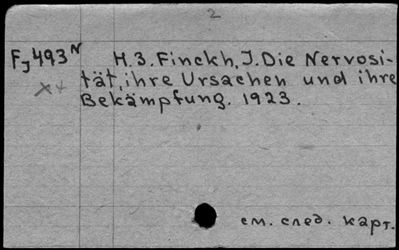 2
Fj493N H.3. Finckh, J. Die Nervosi-
tät, ihre Ursachen und ihre
Bekämpfung. 1923.
см. след. карт.